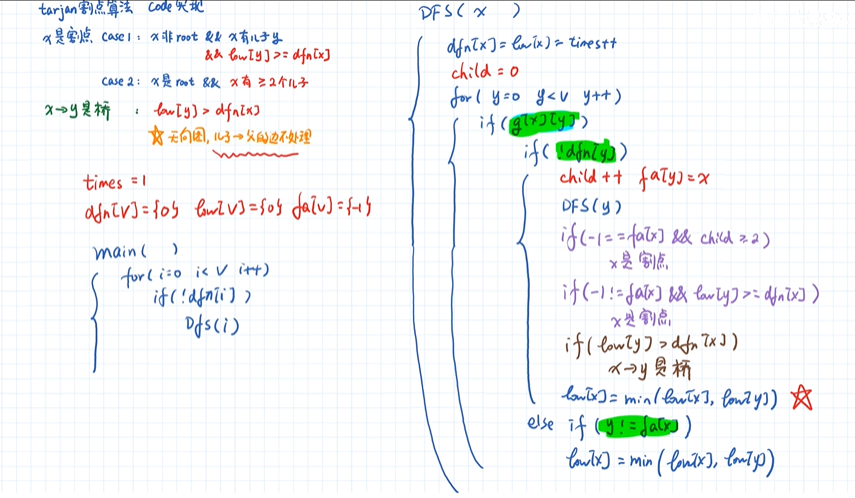 tarjan割点算法 Code实现
x是割点 case1: x非root && x有儿子y
&& low[y] >= dfn[x]
case2: x是root && x有≥2个儿子
x→y是桥 : low[y] > dfn[x]
☆无向图,儿子→父的边不处理
times = 1
dfn[V]={0} low[V]={0} fa[V]={-1}
main( )
for(i=0 i<V i++)
if(!dfn[i])
Dfs(i)
DFS( x )
dfn[x]=low[x]=times++
child = 0
for( y=0 y<V y++)
if(g[x][y])
if(!dfn[y])
child++ fa[y]=x
DFS(y)
if(-1==fa[x] && child≥2)
x是割点
if(-1!=fa[x] && low[y]>=dfn[x])
x是割点
if(low[y]>dfn[x])
x→y是桥
low[x]=min(low[x], low[y]) ☆
else if(y!=fa[x])
low[x]=min(low[x], low[y])